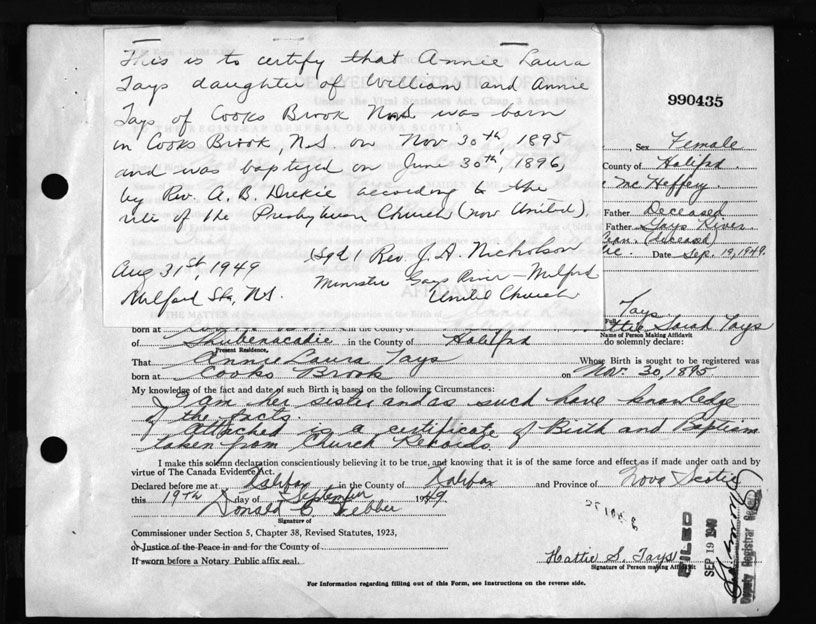 This is to certify that Annie Laura
Tays daughter of William and Annie
Tays of Cooks Brook N.S. was born
in Cooks Brook, N.S. on Nov. 30th 1895
and was baptized on June 30th, 1896,
by Rev. A. B. Dickie according to the
rite of the Presbyterian Church (now United).
(Sgd) Rev. J. A. Nicholson
Aug 31st, 1949
Minister Gays River - Milford
Milford Sta, N.S.
United Church
990435
Sex Female
County of Halifax
McHeffery
Father Deceased
Father Gays River
(deceased)
Date Sep. 19, 1949.
Tays
Hattie Sarah Tays
Full Name of Person Making Affidavit
born at in the County of do solemnly declare:
of Shubenacadie in the County of Halifax
Present Residence,
That Annie Laura Tays Whose Birth is sought to be registered was
born at Cooks Brook on Nov. 30, 1895
My knowledge of the fact and date of such Birth is based on the following Circumstances:
I am her sister and as such have knowledge
of the facts.
Attached is a certificate of Birth and Baptism
taken from Church Records.
I make this solemn declaration conscientiously believing it to be true, and knowing that it is of the same force and effect as if made under oath and by
virtue of The Canada Evidence Act.
Declared before me at Halifax in the County of Halifax and Province of Nova Scotia
this 19th day of September 1949
Donald C. Webber
Signature of
Commissioner under Section 5, Chapter 38, Revised Statutes, 1923,
or Justice of the Peace in and for the County of
If sworn before a Notary Public affix seal.
Hattie S. Tays
Signature of Person making Affidavit
FILED
SEP 19 1949
Deputy Registrar
For Information regarding filling out of this Form, see Instructions on the reverse side.